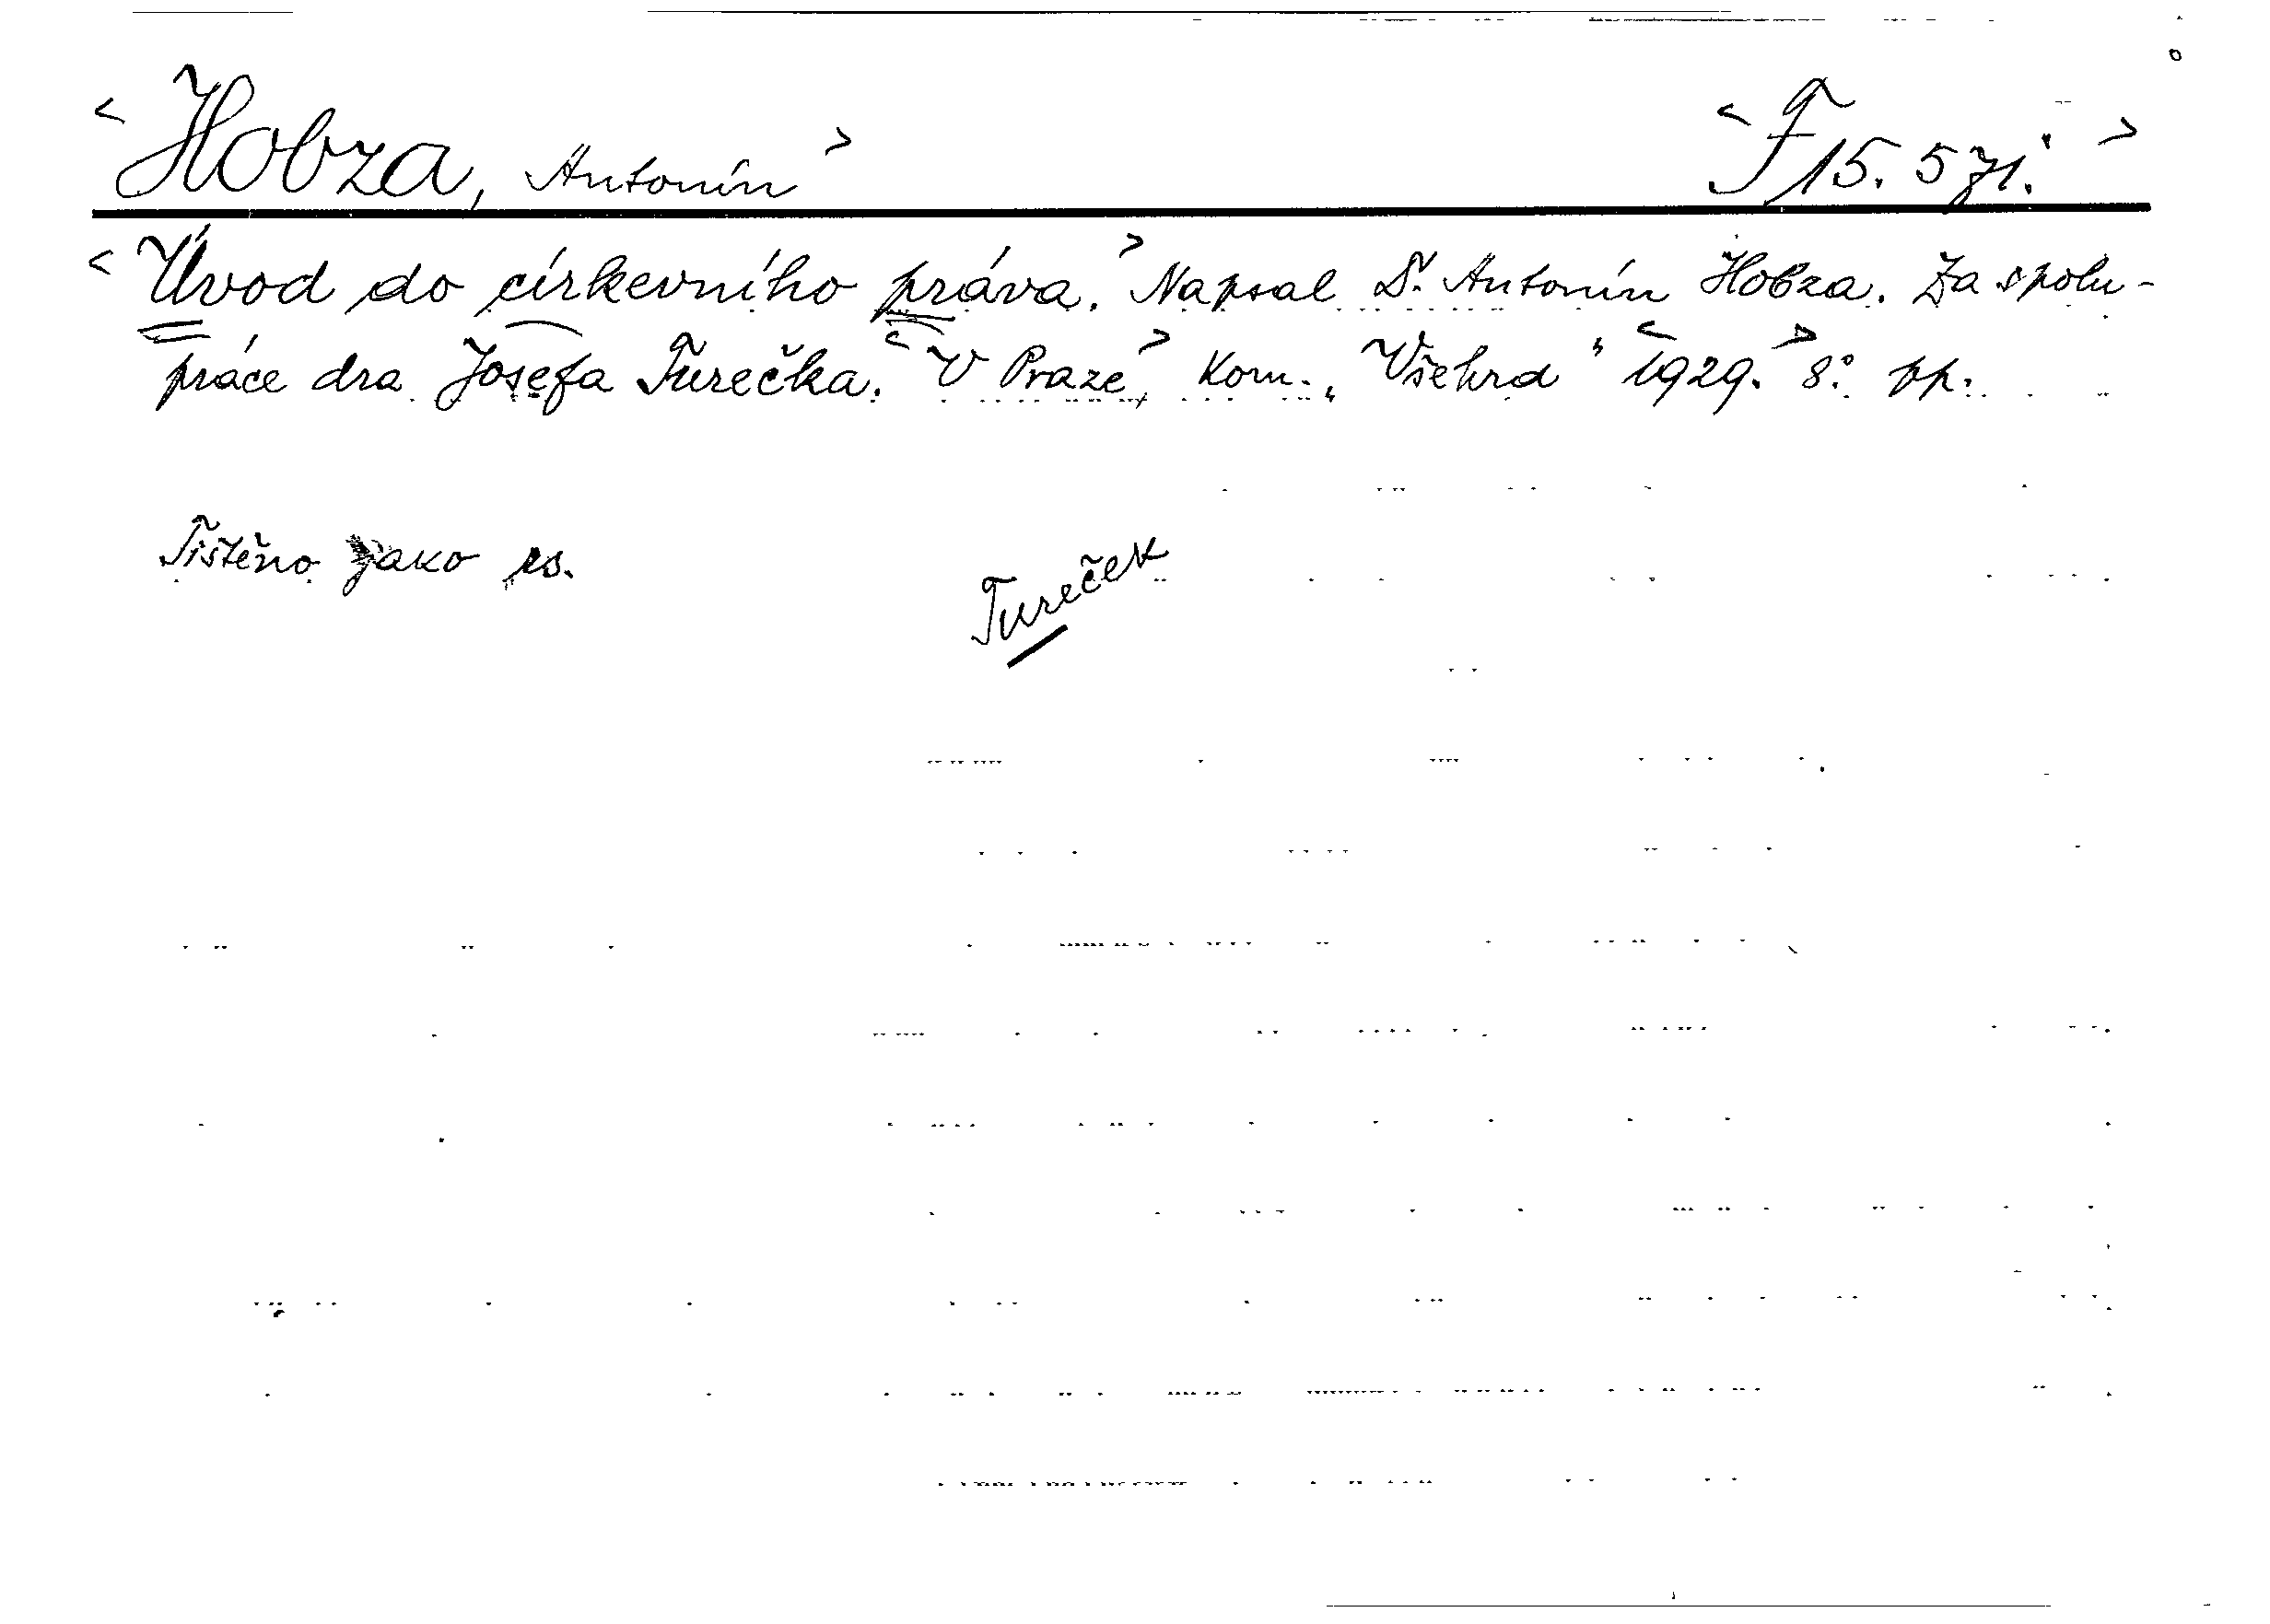 <Hobza, Antonín> <F 15.571.>
<Úvod do církevního práva.> Napsal Dr. Antonín Hobza. Za spolu-
práce dra Josefa Turečka. <V Praze,> Kom. „Všehrd“ <1929.> 8°. pp.
Tištěno jako rs.
Tureček